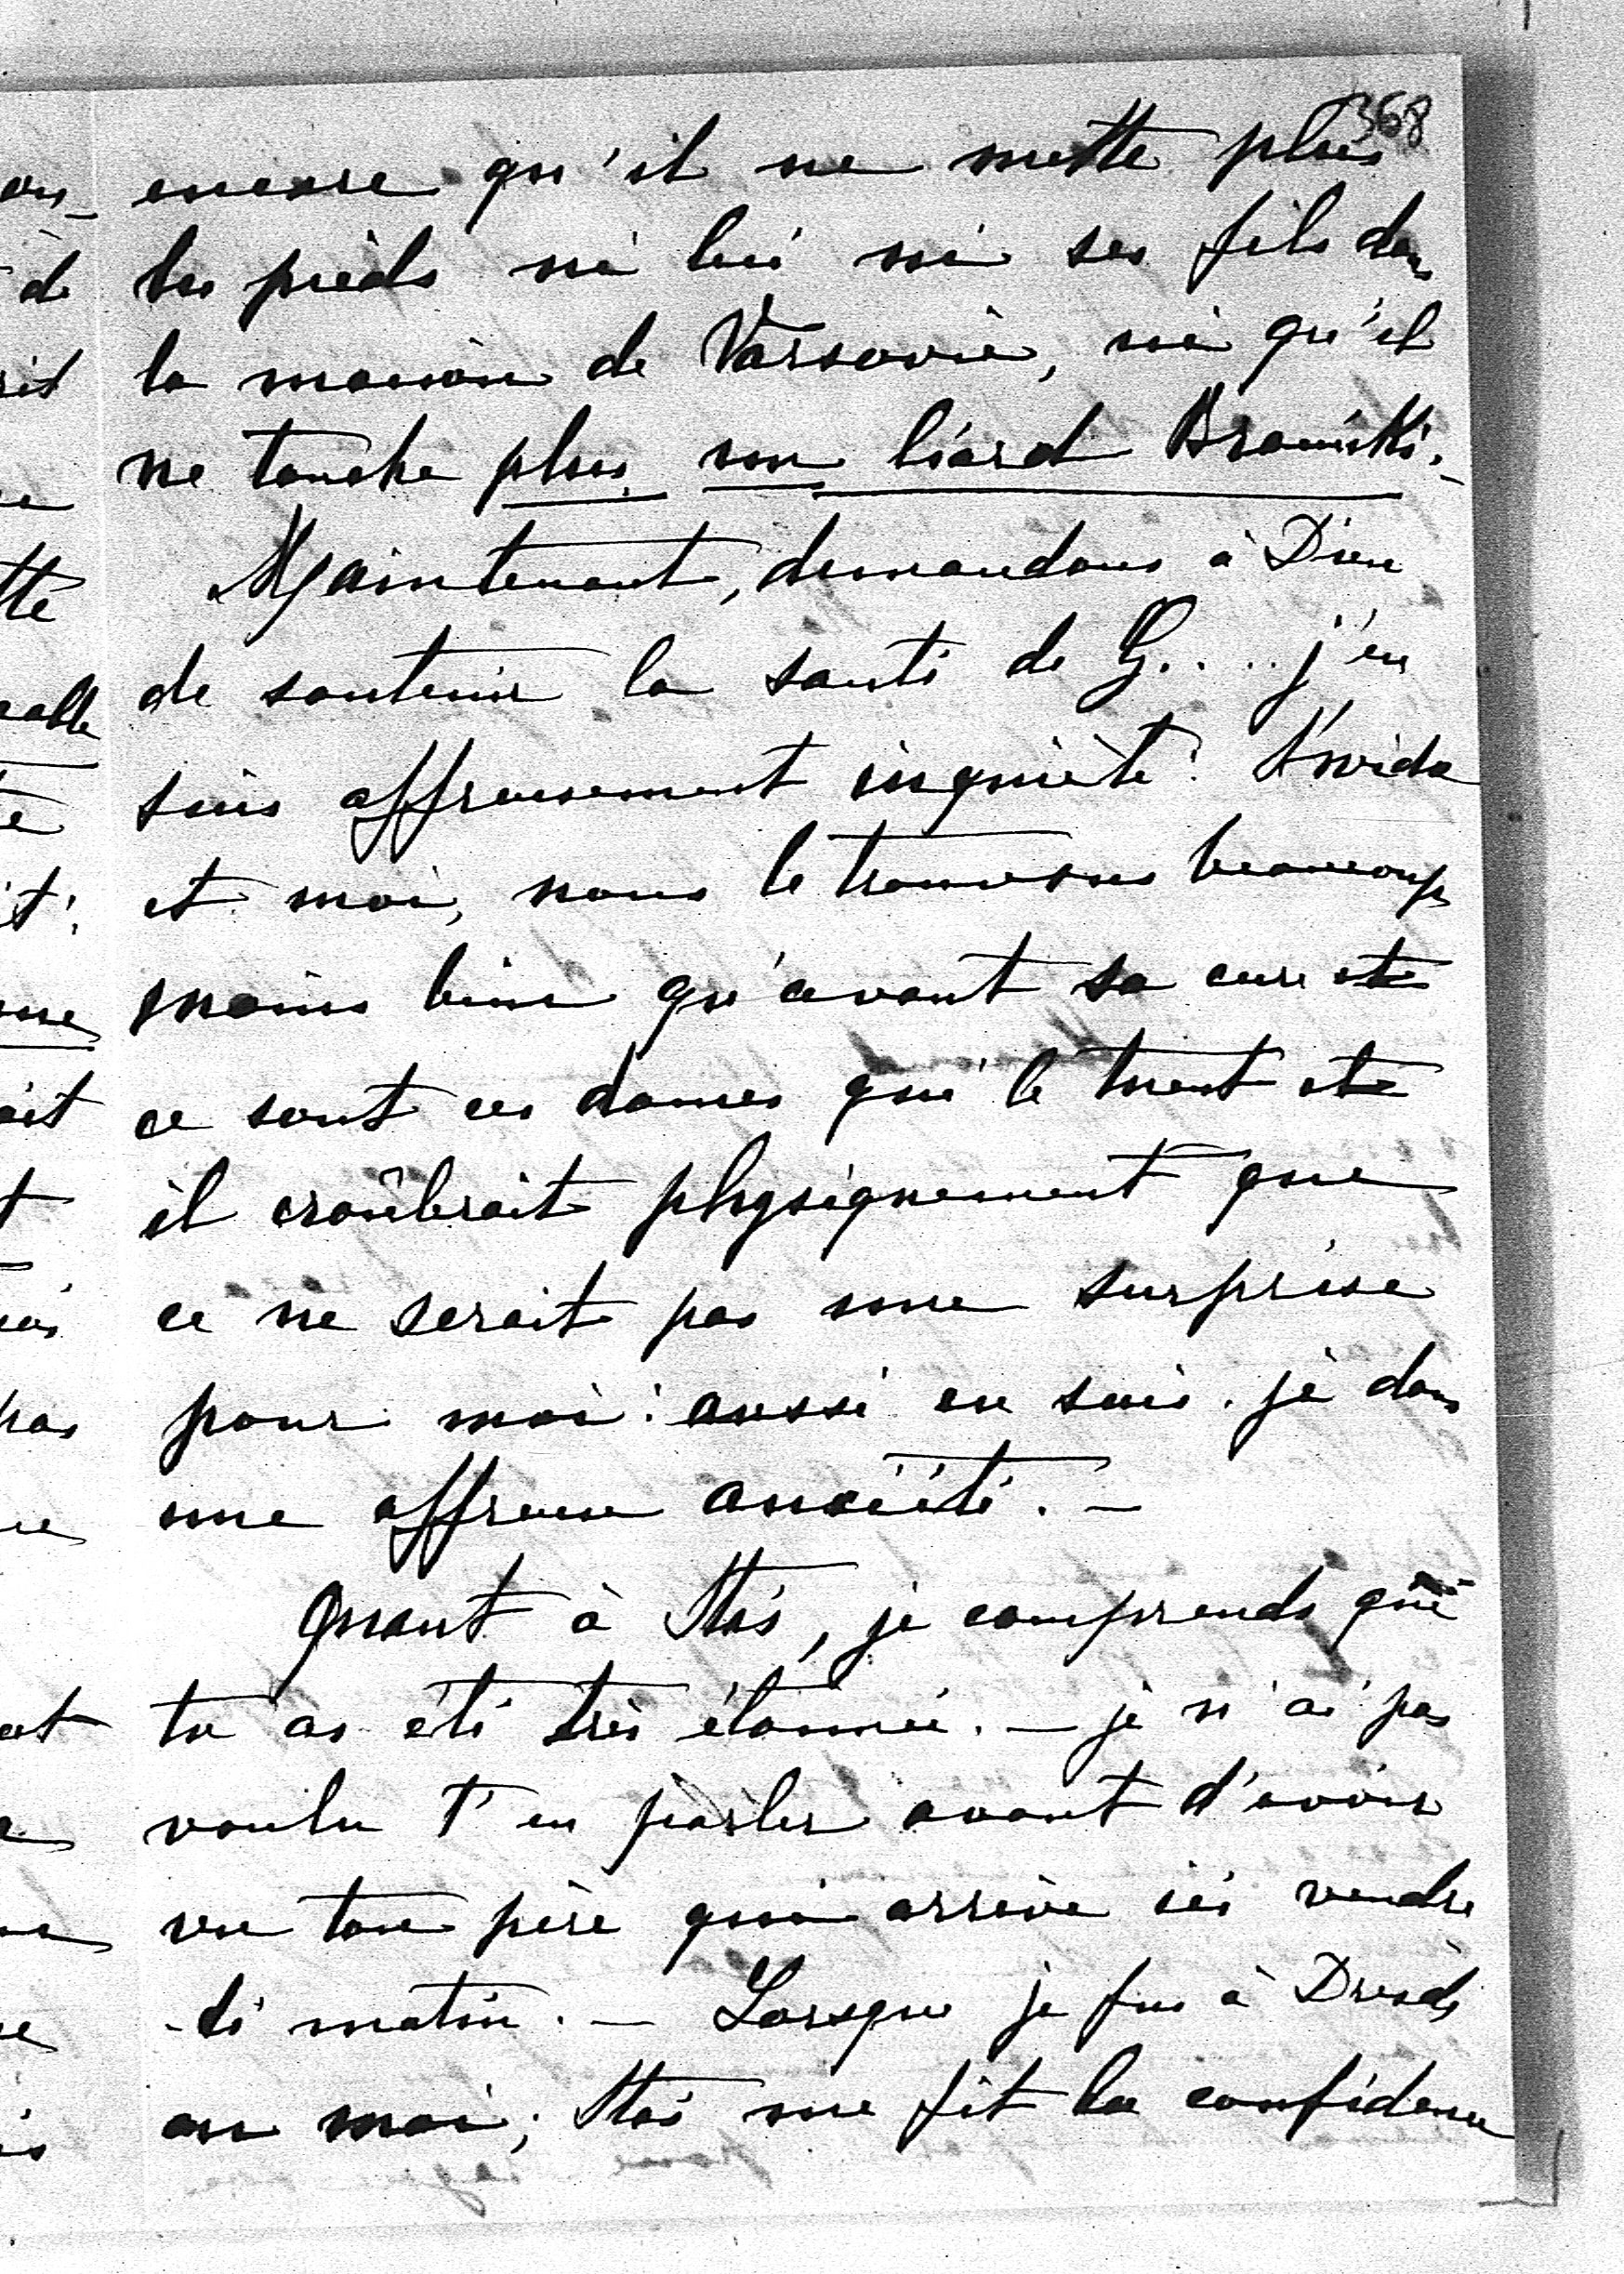 368
encore qu'il ne mette plus
les pieds ni lui ni ses fils dans
la maison de Varsovie, ni qu'il
ne touche plus un liard Branicki. -
Maintenant, demandons à Dieu
de soutenir la santé de G.... j'en
suis affreusement inquiète.
et moi, nous le trouvons beaucoup
moins bien qu'avant sa cure et
ce sont ces dames qui le tuent et
il croûlerait physiquement que
ce ne serait pas une surprise
pour moi : aussi en suis-je dans
une affreuse anxiété. -
Quant à Stas, je comprends que
tu as été très étonnée. - je n'ai pas
voulu t'en parler avant d'avoir
vu ton père qui arrive ici vendre
-di matin. - Lorsque je fus à Dresde
en mai, Stas me fit la confidence